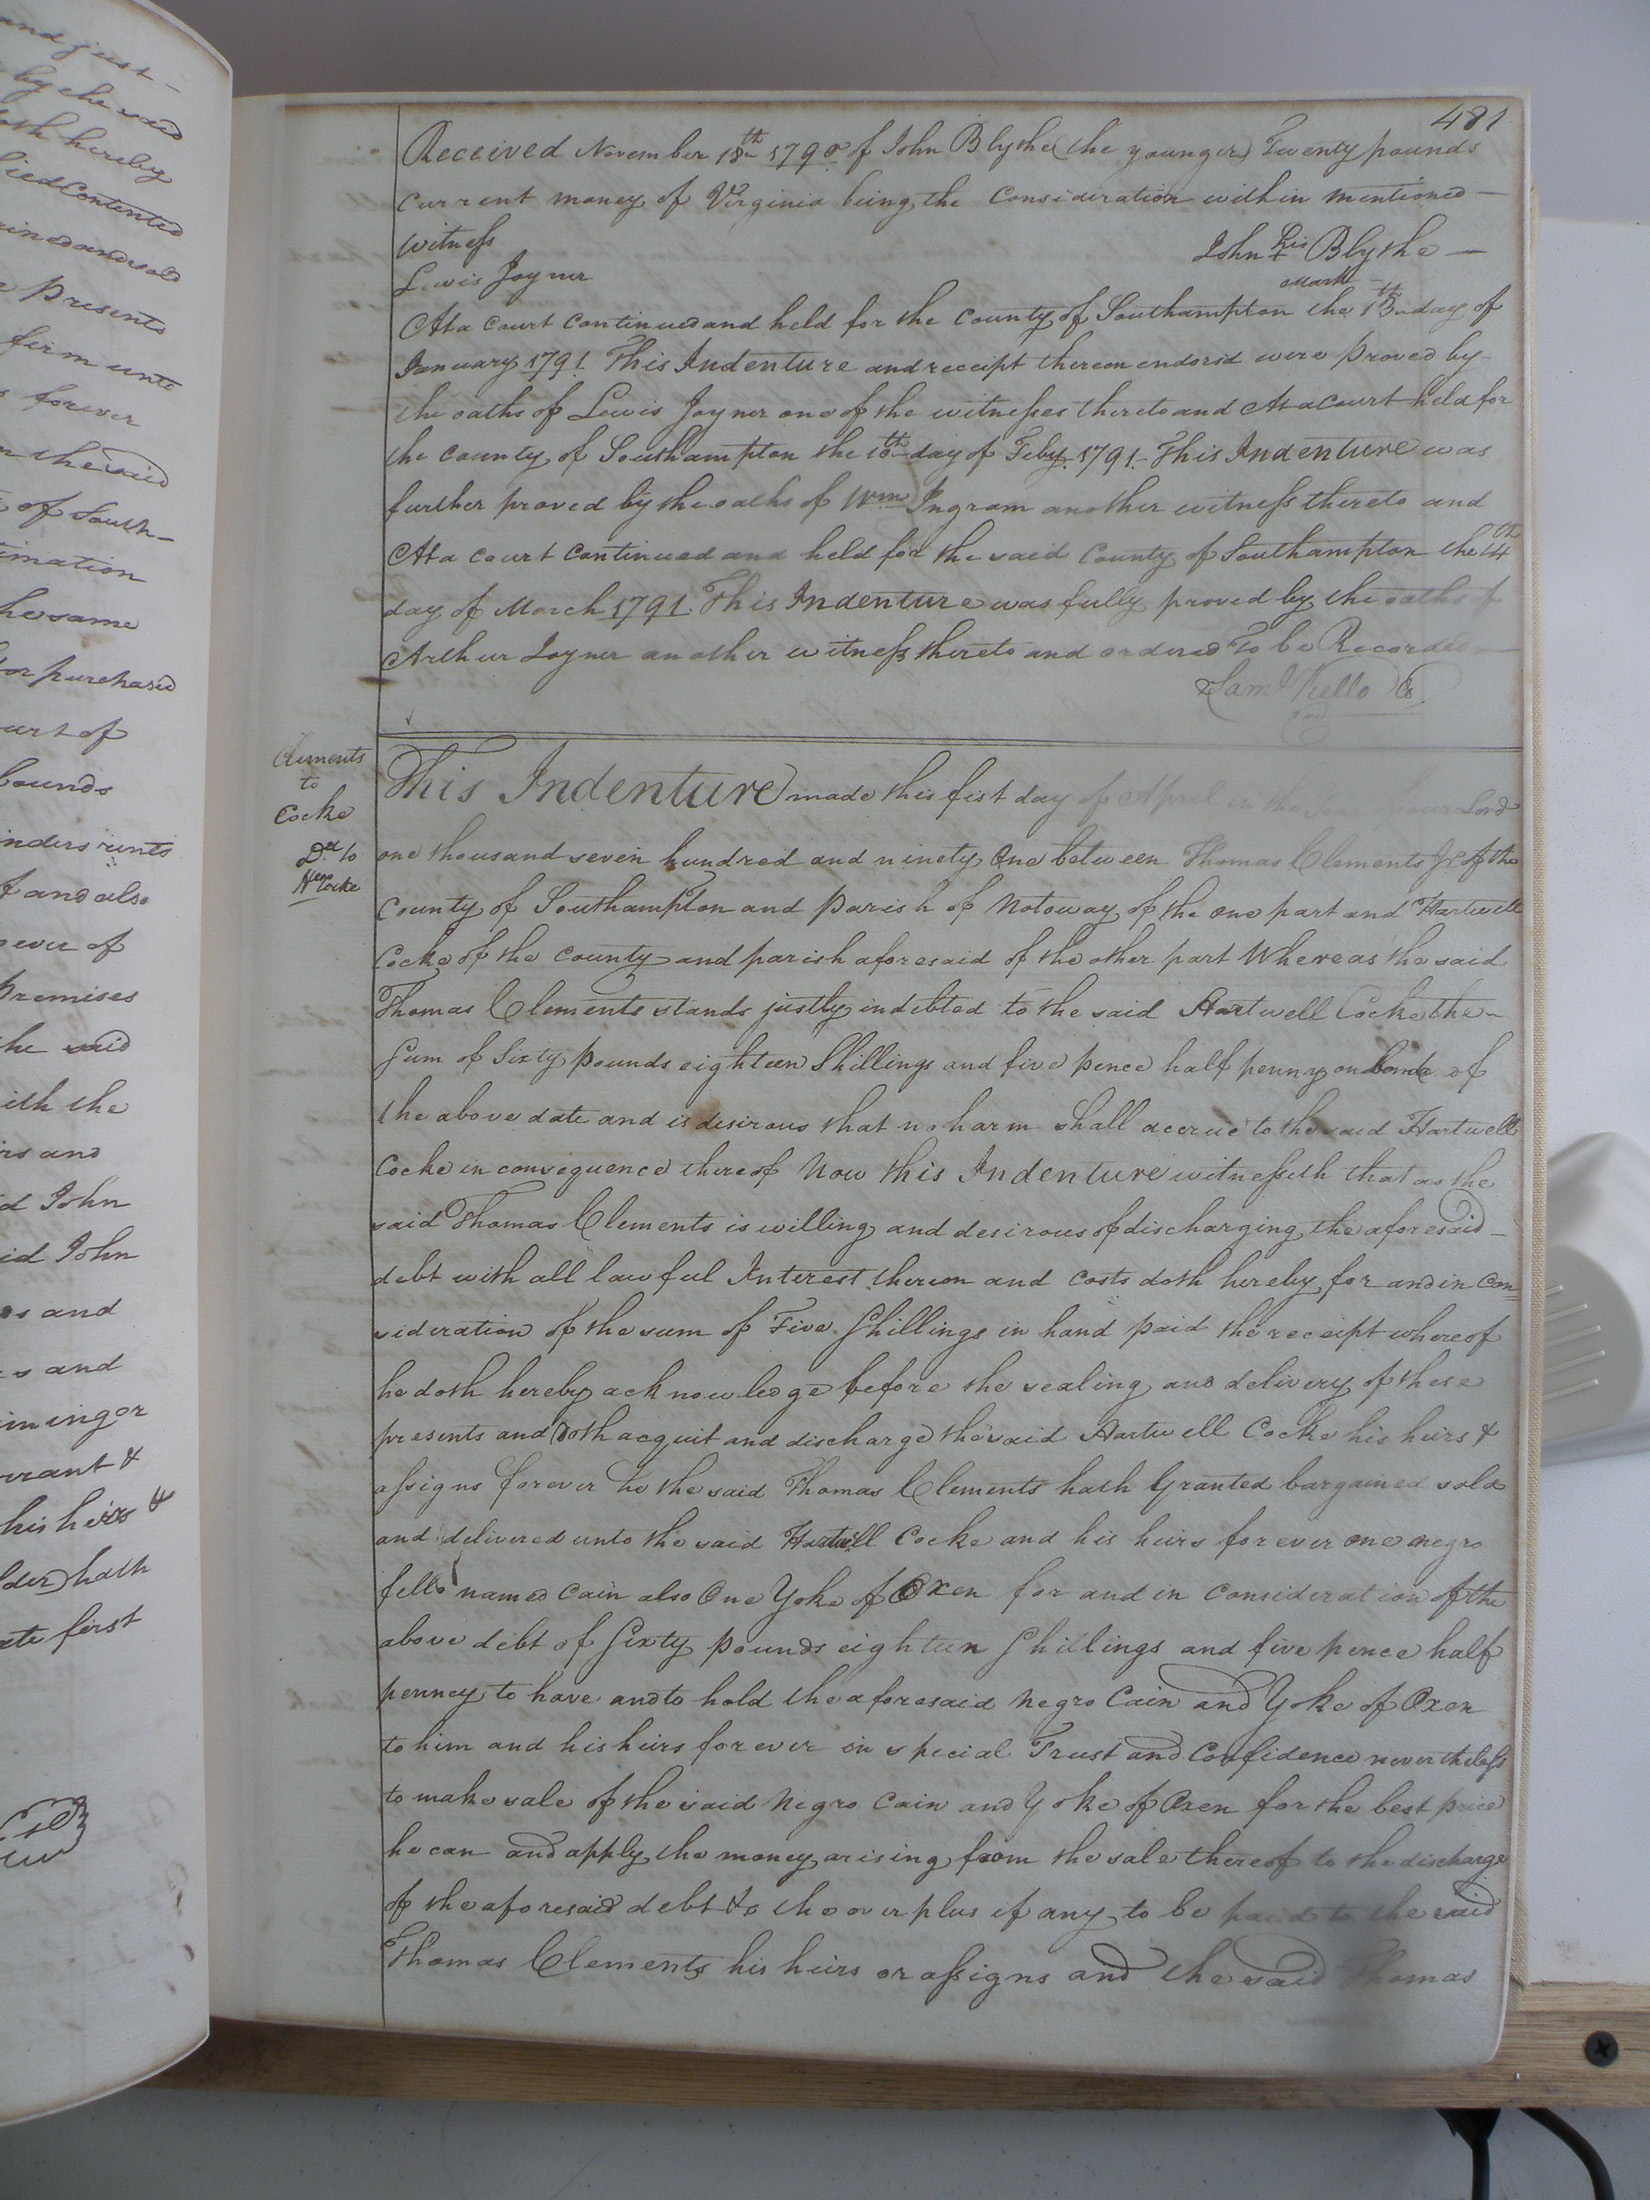 and just
by the said
doth hereby
fied Contented
ained and sold
e presents
firm unto
s forever
n the said
of South-
imation
he same
or purchased
urt of
bounds
inders rents
t and also
ever of
Premises
he said
ith the
rs and
d John
id John
s and
s and
iming or
rrant &
his heirs &
lder) hath
ate first
481
Received November 18th 1790 of John Blythe (the younger) Twenty pounds
Current money of Virginia being the Consideration within mentioned —
Witness
John his + mark Blythe —
Lewis Joyner
At a Court Continued and held for the County of Southampton the 13th day of
January 1791. This Indenture and receipt thereon endorsd were Proved by
the oaths of Lewis Joyner one of the witnesses thereto and At a Court held for
the County of Southampton the 10th day of Feby. 1791. This Indenture was
further proved by the oaths of Wm Ingram another witness thereto and
At a Court Continued and held for the said County of Southampton the 14th
day of March 1791. This Indenture was fully proved by the oaths of
Arthur Joyner another witness thereto and ordered To be Recorded —
Saml Kello Cs
Clements
to
Cocke
Dd to
Hl Cocke
This Indenture made this fist day of April in the our Lord
one thousand seven hundred and ninety One between Thomas Clements Jr of the
County of Southampton and Parish of Notoway of the one part and Hartwell
Cocke of the County and parish aforesaid of the other part Whereas the said
Thomas Clements stands justly indebted to the said Hartwell Cocke the —
Sum of Sixty Pounds eighteen Shillings and five pence half penny on bonde of
the above date and is desirous that no harm shall accrue to the said Hartwell
Cocke in consequence thereof Now this Indenture witnesseth that as the
said Thomas Clements is willing and desirous of discharging the aforesaid —
debt with all lawful Interest thereon and Costs doth hereby for and in Con=
sideration of the sum of Five Shillings in hand paid the receipt whereof
he doth hereby acknowledge before the sealing and delivery of these
presents and doth acquit and discharge the said Hartwell Cocke his heirs &
assigns forever he the said Thomas Clements hath Granted bargained sold
and delivered unto the said Hartwell Cocke and his heirs for ever one negro
fello named Cain also One Yoke of Oxen for and in Consideration of the
above debt of Sixty Pounds eighteen Shillings and five pence half
penney to have and to hold the aforesaid Negro Cain and Yoke of Oxen
to him and his heirs for ever in special Trust and Confidence nevertheless
to make sale of the said Negro Cain and Yoke of Oxen for the best price
he can and apply the money arising from the sale thereof to the discharge
of the aforesaid debt &c the overplus if any to be paid to the said
Thomas Clements his heirs or assigns and the said Thomas